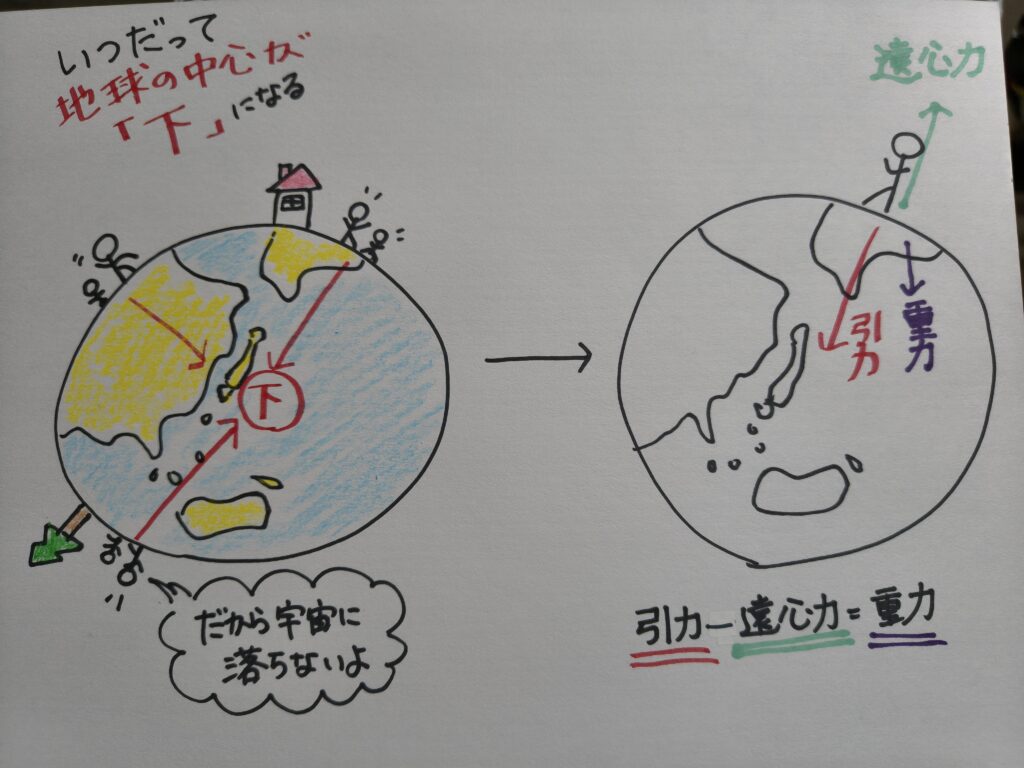 いつだって
地球の中心が
「下」になる
下
だから宇宙に
落ちないよ
遠心力
引力
重力
引力－遠心力＝重力